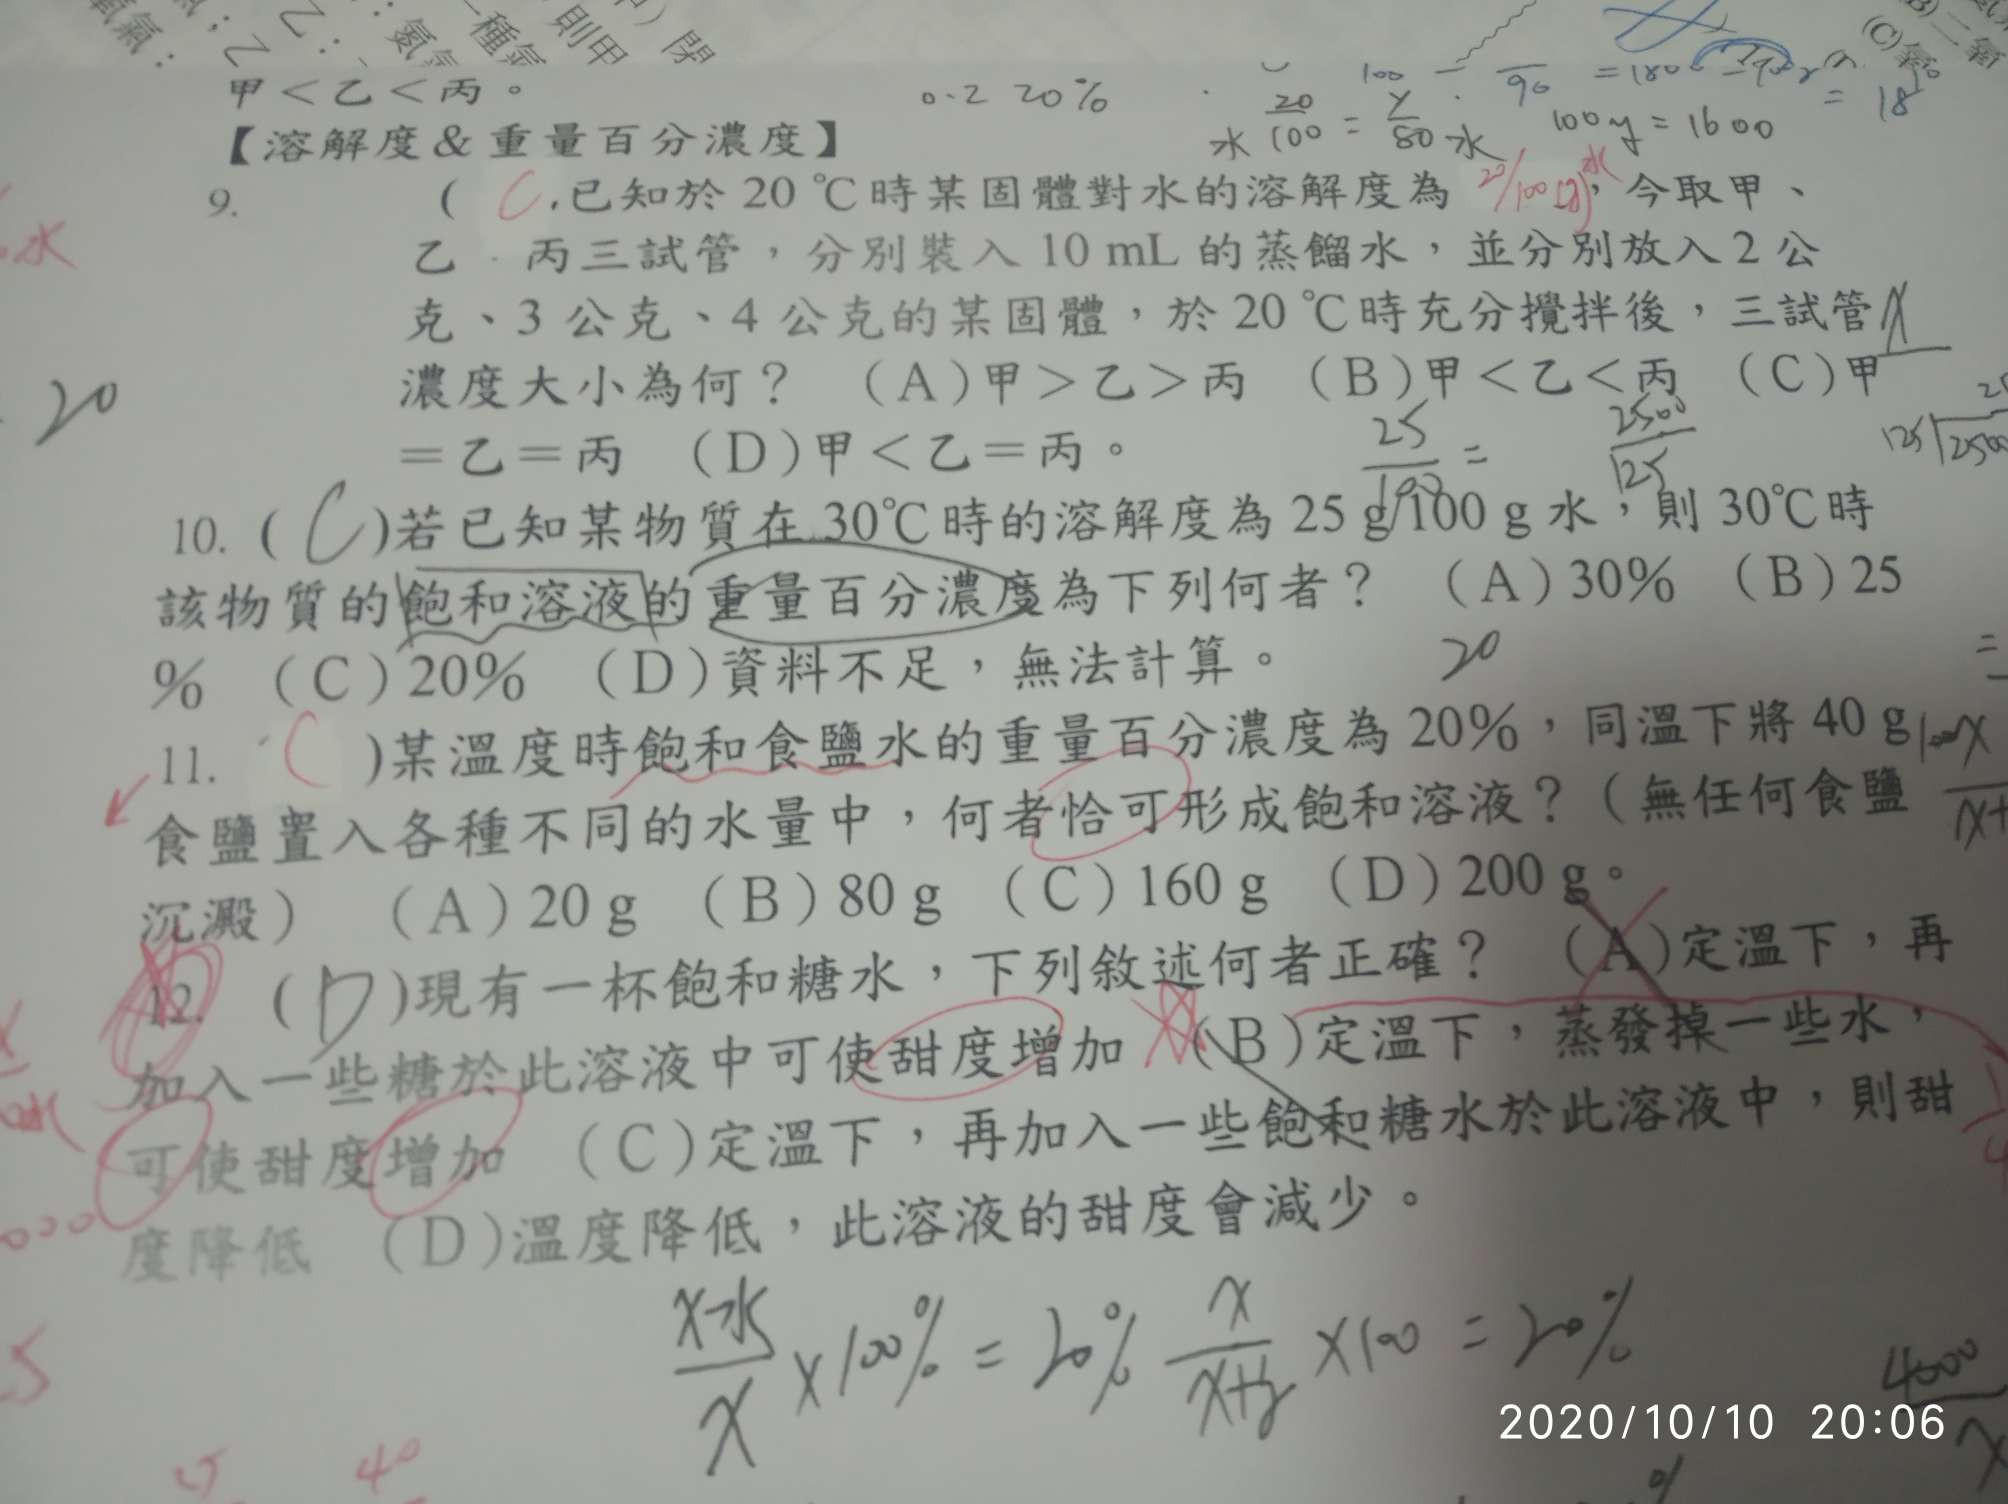 甲＜乙＜丙。
0.2 20%
水 20/100 = y/80 水
100y = 1600
【溶解度&重量百分濃度】
9. ( C .已知於 20 ℃時某固體對水的溶解度為 20/100(g)水，今取甲、
乙 丙三試管，分別裝入 10 mL 的蒸餾水，並分別放入 2 公
克、3 公克、4 公克的某固體，於 20 ℃時充分攪拌後，三試管
濃度大小為何？ （A）甲＞乙＞丙 （B）甲＜乙＜丙 （C）甲
＝乙＝丙 （D）甲＜乙＝丙。
20
25/100 = 2500/125
10. ( C )若已知某物質在 30℃時的溶解度為 25 g/100 g 水，則 30℃時
該物質的飽和溶液的重量百分濃度為下列何者？ （A）30% （B）25
% （C）20% （D）資料不足，無法計算。
20
11. C )某溫度時飽和食鹽水的重量百分濃度為 20%，同溫下將 40 g
食鹽置入各種不同的水量中，何者恰可形成飽和溶液？（無任何食鹽
沉澱） （A）20 g （B）80 g （C）160 g （D）200 g。
12. ( D )現有一杯飽和糖水，下列敘述何者正確？ （A）定溫下，再
加入一些糖於此溶液中可使甜度增加 （B）定溫下，蒸發掉一些水，
可使甜度增加 （C）定溫下，再加入一些飽和糖水於此溶液中，則甜
度降低 （D）溫度降低，此溶液的甜度會減少。
x水/x ×100% = 20% x/x+y ×100 = 20%
4000
40
2020/10/10 20:06